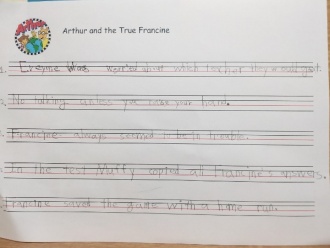 Arthur
Arthur and the True Francine
1. Everyone was worried about which teacher they would get.
2. No talking unless you raise your hand.
3. Francine always seemed to be in trouble.
4. In the test Muffy copied all Francine's answers.
5. Francine saved the game with a home run.